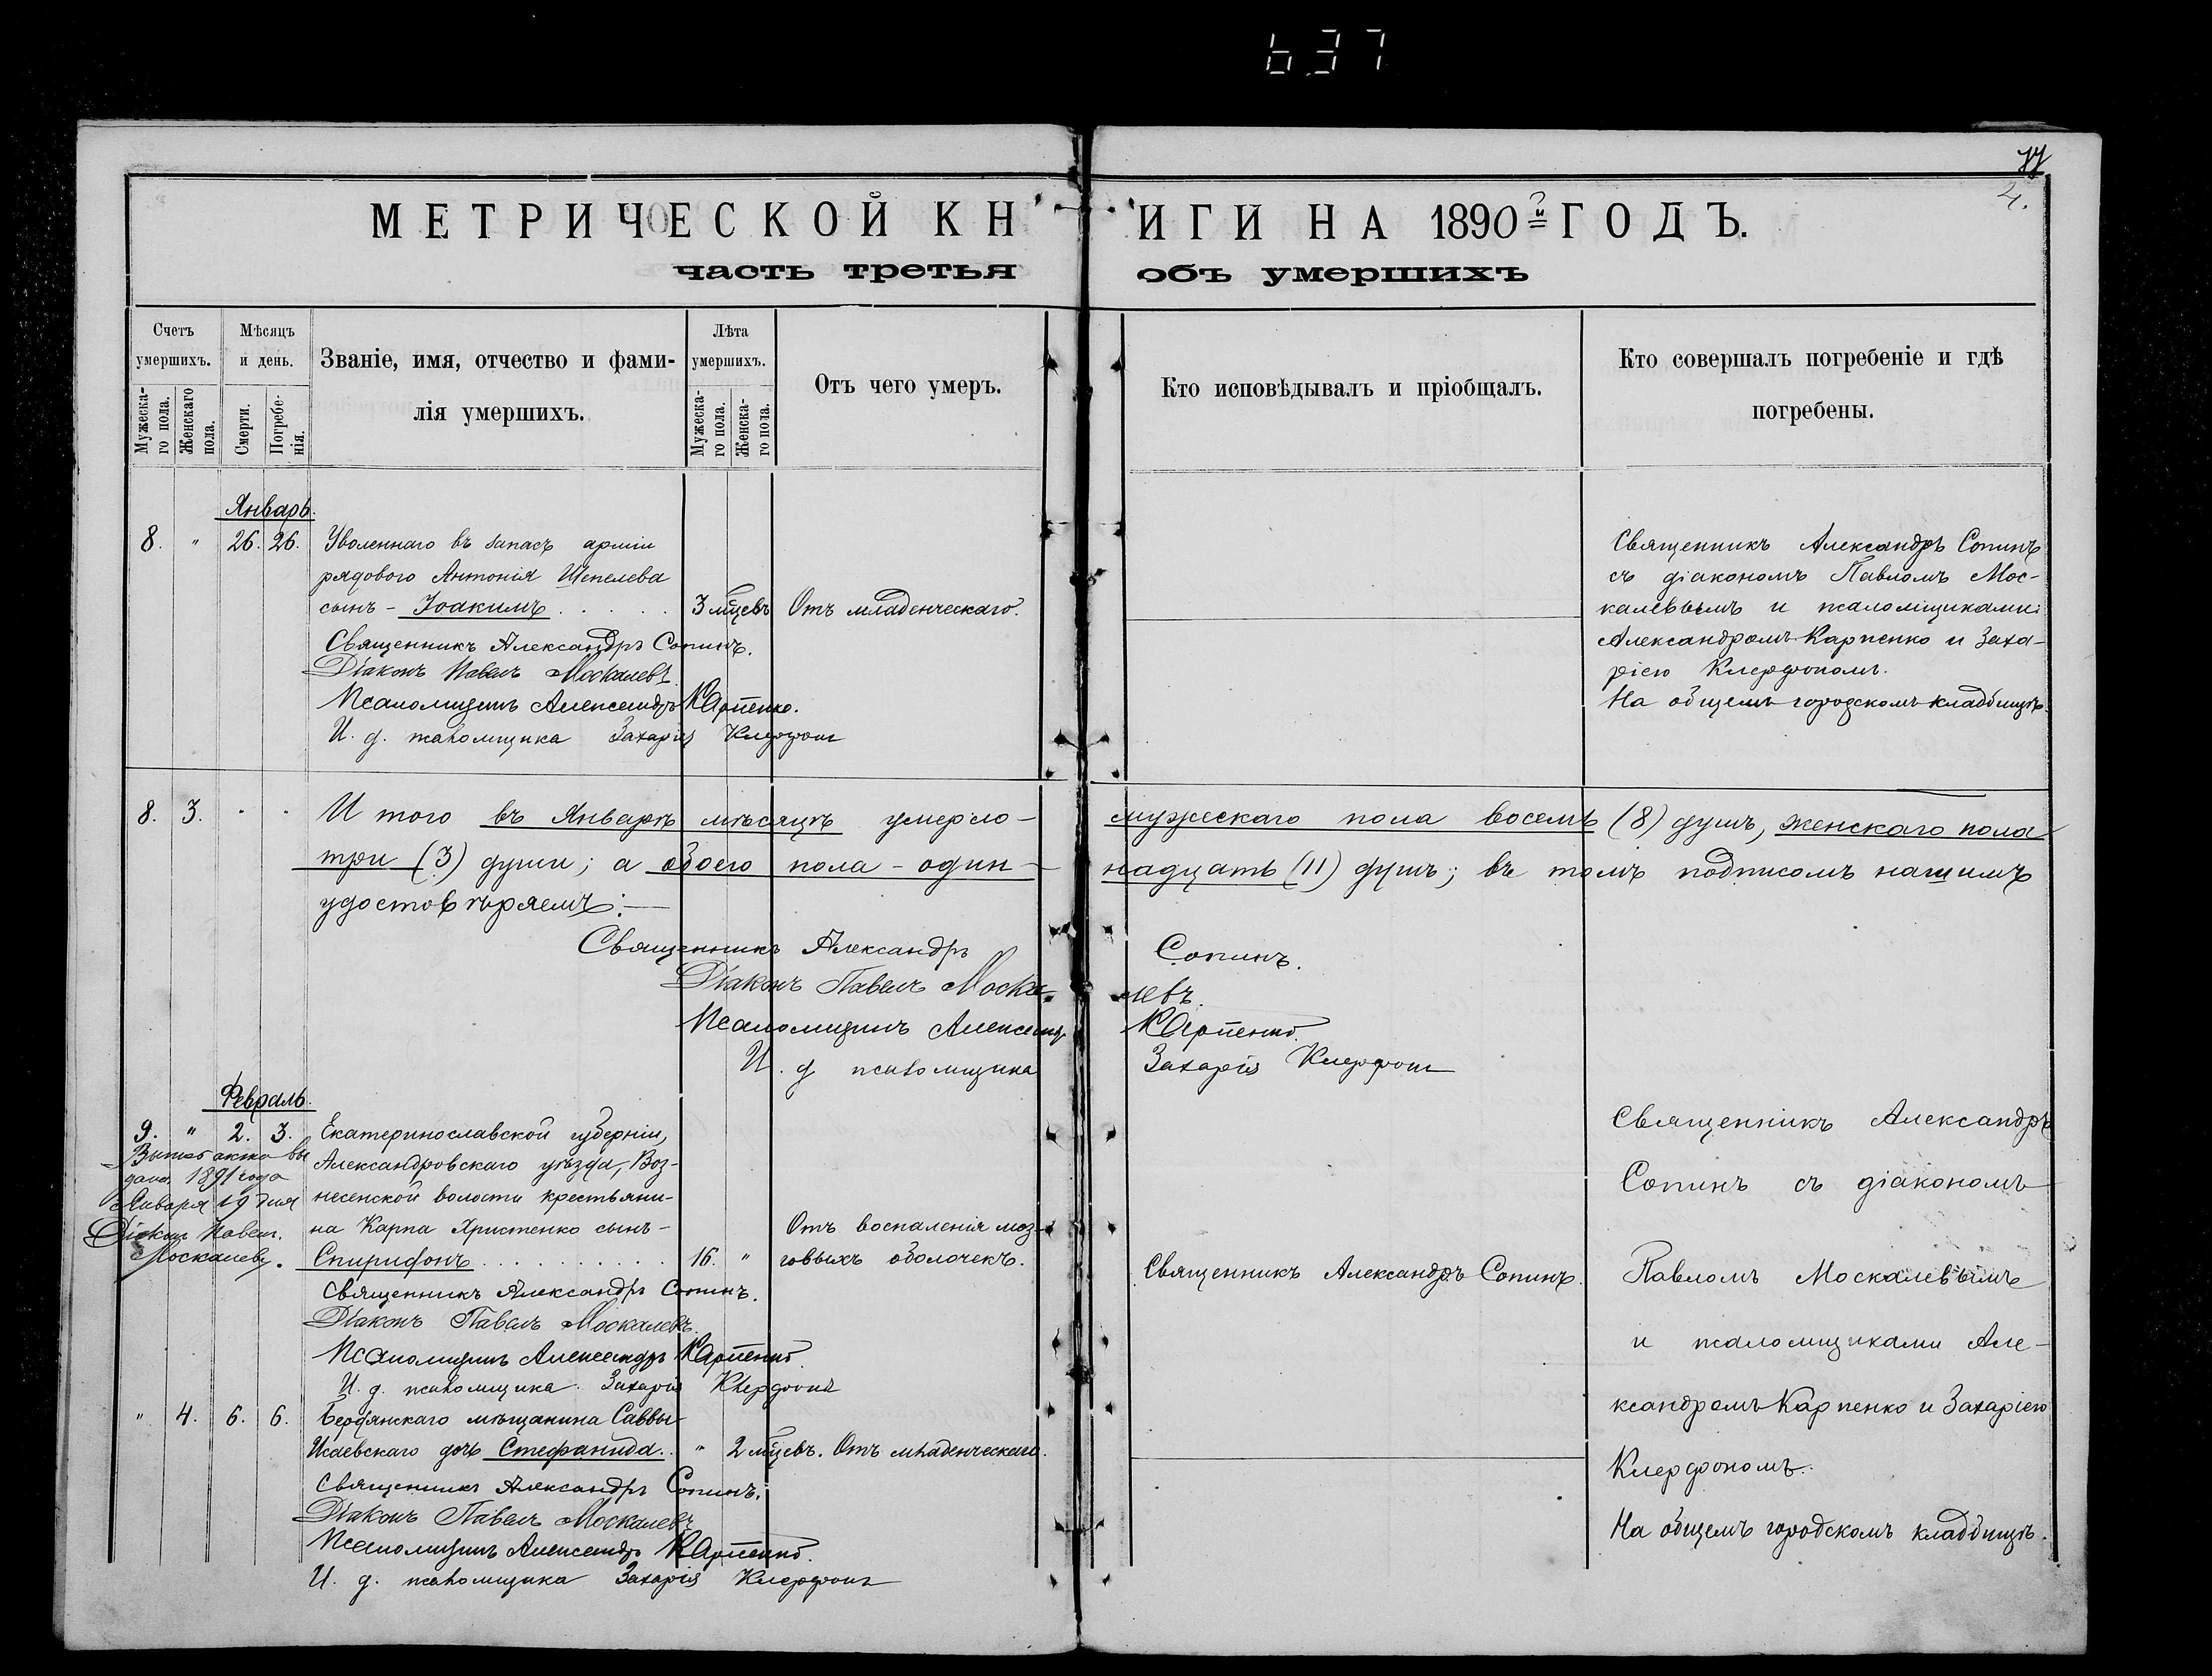 637
77
4.
МЕТРИЧЕСКОЙ КНИГИ НА 1890й ГОДЪ.
часть третья объ умершихъ
Счетъ умершихъ.
Мужеска-го пола.
Женскаго пола.
Мѣсяцъ и день.
Смерти.
Погребе-нія.
Званіе, имя, отчество и фами-
лія умершихъ.
Лѣта умершихъ.
Мужеска-го пола.
Женска-го пола.
Отъ чего умеръ.
Кто исповѣдывалъ и пріобщалъ.
Кто совершалъ погребеніе и гдѣ
погребены.
Январь.
8. " 26. 26. Уволеннаго въ запасъ арміи
рядового Антонія Шепелева
сынъ - Іоакимъ . . . . . 3 мѣцевъ Отъ младенческаго.
Священникъ Александръ Сопинъ.
Діаконъ Павелъ Москалевъ.
Псаломщикъ Александръ Карпенко.
И. д. псаломщика Захарія
Священникъ Александръ Сопинъ
съ діакономъ Павломъ Мос-
калевымъ и псаломщиками:
Александромъ Карпенко и Заха-
ріею
На общемъ городскомъ кладбищѣ.
8. 3. " " И того въ Январѣ мѣсяцѣ умерло - мужескаго пола восемь (8) душъ, женскаго пола
три (3) души; а обоего пола - один-надцать (11) душъ; въ томъ подписомъ нашимъ
удостовѣряемъ: —
Священникъ Александръ Сопинъ.
Діаконъ Павелъ Москалевъ.
Псаломщикъ Александръ Карпенко.
И. д. псаломщика Захарія
Февраль.
9. " 2. 3. Екатеринославской губерніи,
Александровскаго уѣзда, Воз-
несенской волости крестьяни-
на Карпа Христенко сынъ -
Спиридонъ . . . . . . . . . . 16. " Отъ воспаленія моз-
говыхъ оболочекъ.
Священникъ Александръ Сопинъ.
акта вы
данъ 1891 года
Января 19 дня
Діаконъ Павелъ
Москалевъ.
Священникъ Александръ Сопинъ.
Діаконъ Павелъ Москалевъ.
Псаломщикъ Александръ Карпенко.
И. д. псаломщика Захарія
" 4. 6. 6. Бердянскаго мѣщанина Саввы
Исаевскаго дочь Стефанида. . " 2 мѣцевъ. Отъ младенческаго.
Священникъ Александръ Сопинъ.
Діаконъ Павелъ Москалевъ
Псаломщикъ Александръ Карпенко.
И. д. псаломщика Захарія
Священникъ Александръ
Сопинъ съ діакономъ
Павломъ Москалевымъ
и псаломщиками Але-
ксандромъ Карпенко и Захаріею
На общемъ городскомъ кладбищѣ.